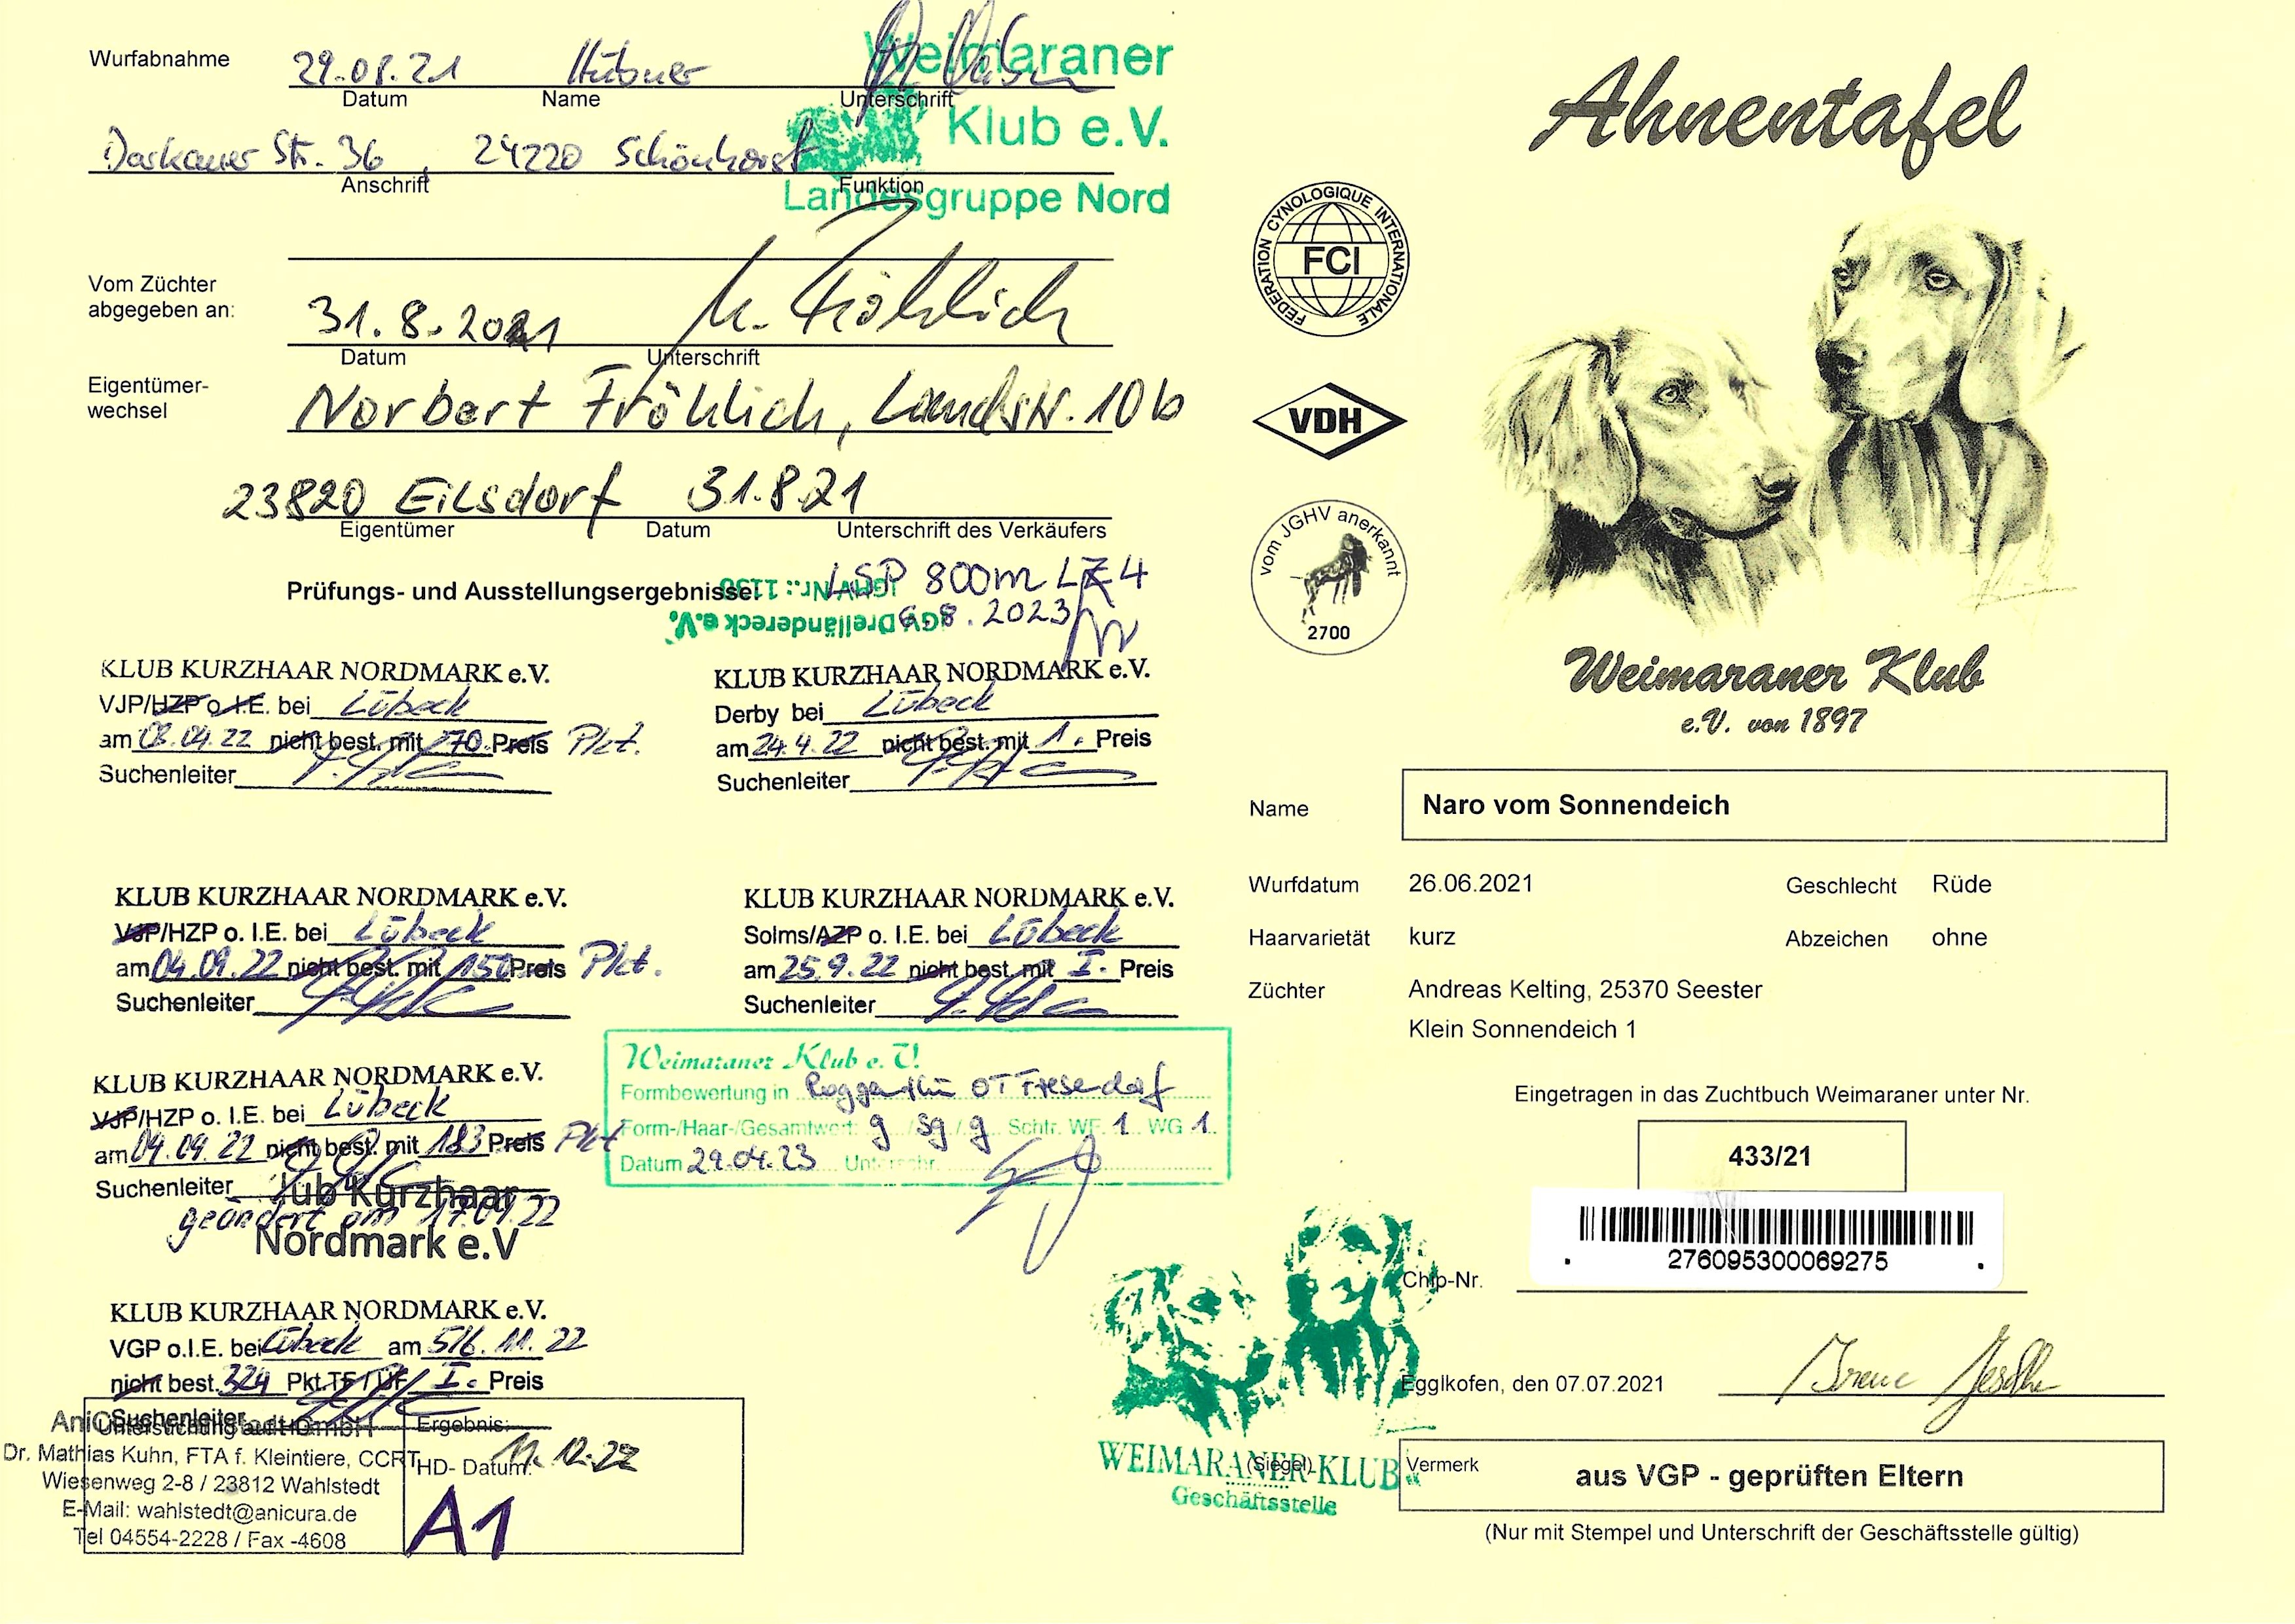 Wurfabnahme
29.08.21 Hübner
Datum Name Unterschrift
Weimaraner
Klub e.V.
Landesgruppe Nord
Str. 36, 24220 Schönhorst
Anschrift Funktion
Vom Züchter
abgegeben an:
31.8.2021 N. Fröhlich
Datum Unterschrift
Eigentümer-
wechsel
Norbert Fröhlich, Landstr. 10b
23820 Eilsdorf 31.8.21
Eigentümer Datum Unterschrift des Verkäufers
Prüfungs- und Ausstellungsergebnisse:
JGHV Nr.: 1130
JGV Dreiländereck e.V.
LSP 800m LZ 4
6.8.2023
KLUB KURZHAAR NORDMARK e.V.
VJP/HZP o. I.E. bei Lübeck
am 03.04.22 nicht best. mit 70 Preis Pkt.
Suchenleiter
KLUB KURZHAAR NORDMARK e.V.
Derby bei Lübeck
am 24.4.22 nicht best. mit 1. Preis
Suchenleiter
KLUB KURZHAAR NORDMARK e.V.
VJP/HZP o. I.E. bei Lübeck
am 04.09.22 nicht best. mit 150 Preis Pkt.
Suchenleiter
KLUB KURZHAAR NORDMARK e.V.
Solms/AZP o. I.E. bei Lübeck
am 25.9.22 nicht best. mit I. Preis
Suchenleiter
KLUB KURZHAAR NORDMARK e.V.
VJP/HZP o. I.E. bei Lübeck
am 04.09.22 nicht best. mit 183 Preis Pkt
Suchenleiter
geändert am 17.09.22
lub Kurzhaar
Nordmark e.V
Weimaraner Klub e. V.
Formbewertung in OT Fresendorf
Form-/Haar-/Gesamtwert: g / sg / g Schtr. WF. 1 WG 1.
Datum 29.04.23 Unterschr.
KLUB KURZHAAR NORDMARK e.V.
VGP o.I.E. bei Lübeck am 5/6.11.22
nicht best. 324 Pkt. TF / ÜF I. Preis
Suchenleiter
Dr. Mathias Kuhn, FTA f. Kleintiere, CCRT
Wiesenweg 2-8 / 23812 Wahlstedt
E-Mail: wahlstedt@anicura.de
Tel 04554-2228 / Fax -4608
Ergebnis:
HD- Datum: 11.12.22
A1
Ahnentafel
FEDERATION CYNOLOGIQUE INTERNATIONALE
FCI
VDH
vom JGHV anerkannt
2700
Weimaraner Klub
e.V. von 1897
Name Naro vom Sonnendeich
Wurfdatum 26.06.2021 Geschlecht Rüde
Haarvarietät kurz Abzeichen ohne
Züchter Andreas Kelting, 25370 Seester
Klein Sonnendeich 1
Eingetragen in das Zuchtbuch Weimaraner unter Nr.
433/21
276095300069275
Chip-Nr.
Egglkofen, den 07.07.2021
WEIMARANER-KLUB
(Siegel)
Geschäftsstelle
Vermerk aus VGP - geprüften Eltern
(Nur mit Stempel und Unterschrift der Geschäftsstelle gültig)